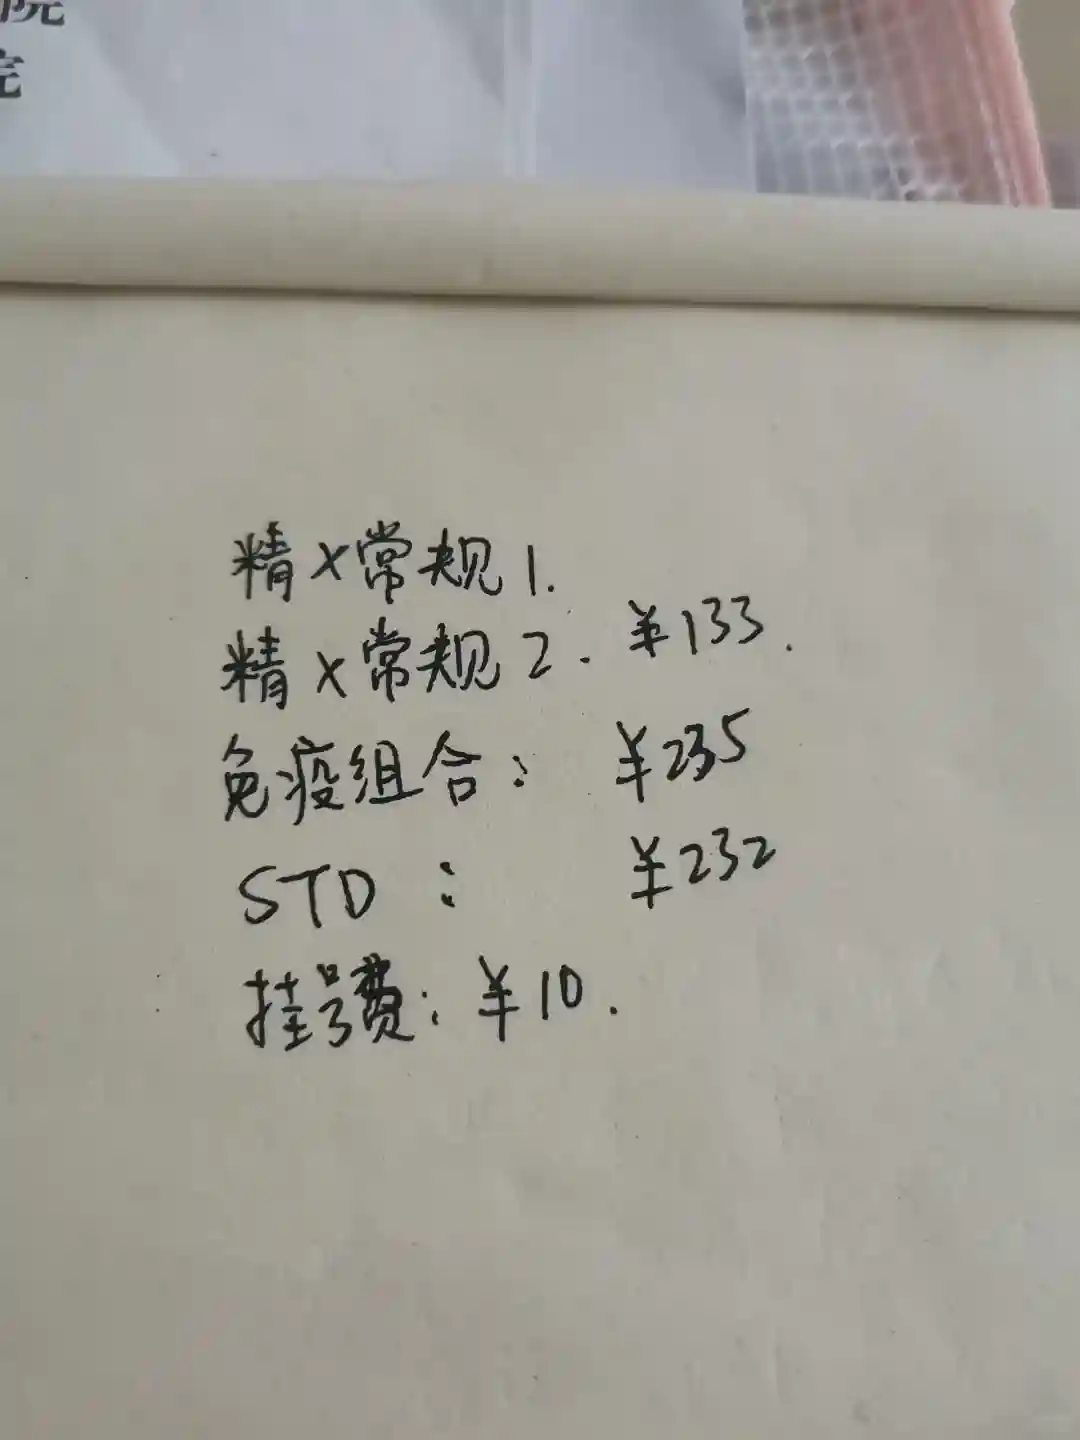 院
院
精×常规1.
精×常规2. ¥133.
免疫组合: ¥235
STD: ¥232
挂号费: ¥10.